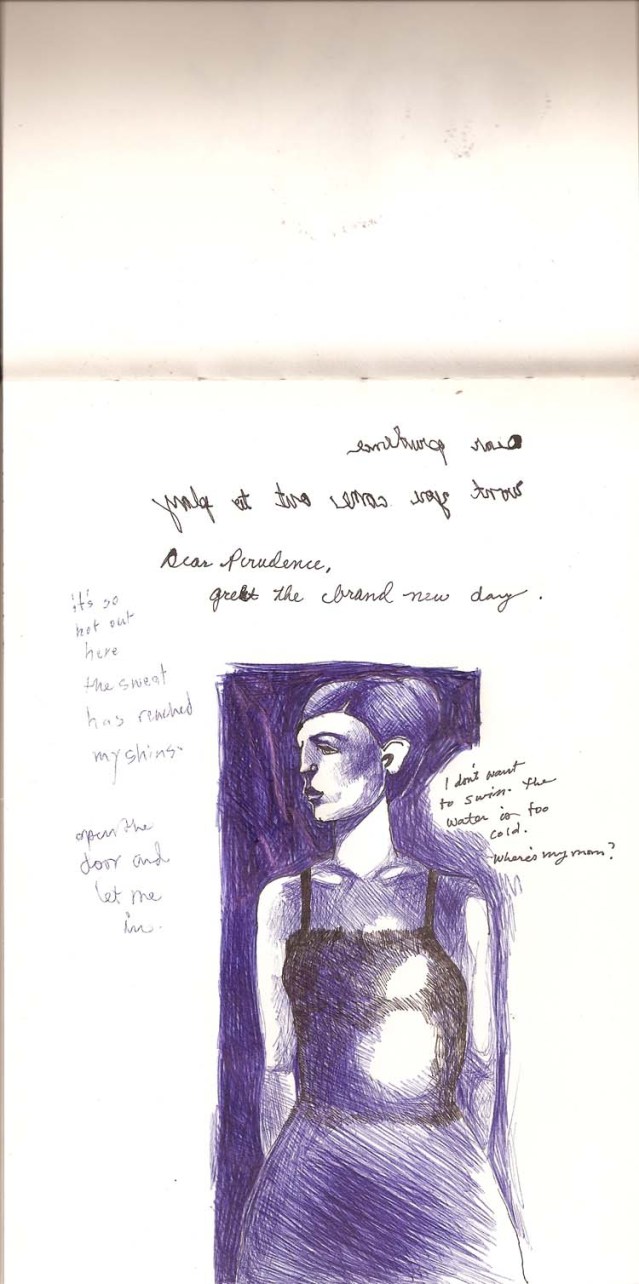 Dear prudence
wont you come out to play
Dear Prudence,
greet the brand new day.
it's so
hot out
here
the sweat
has reached
my shins.
open the
door and
let me
in.
I don't want
to swim. the
water is too
cold.
where's my mom?